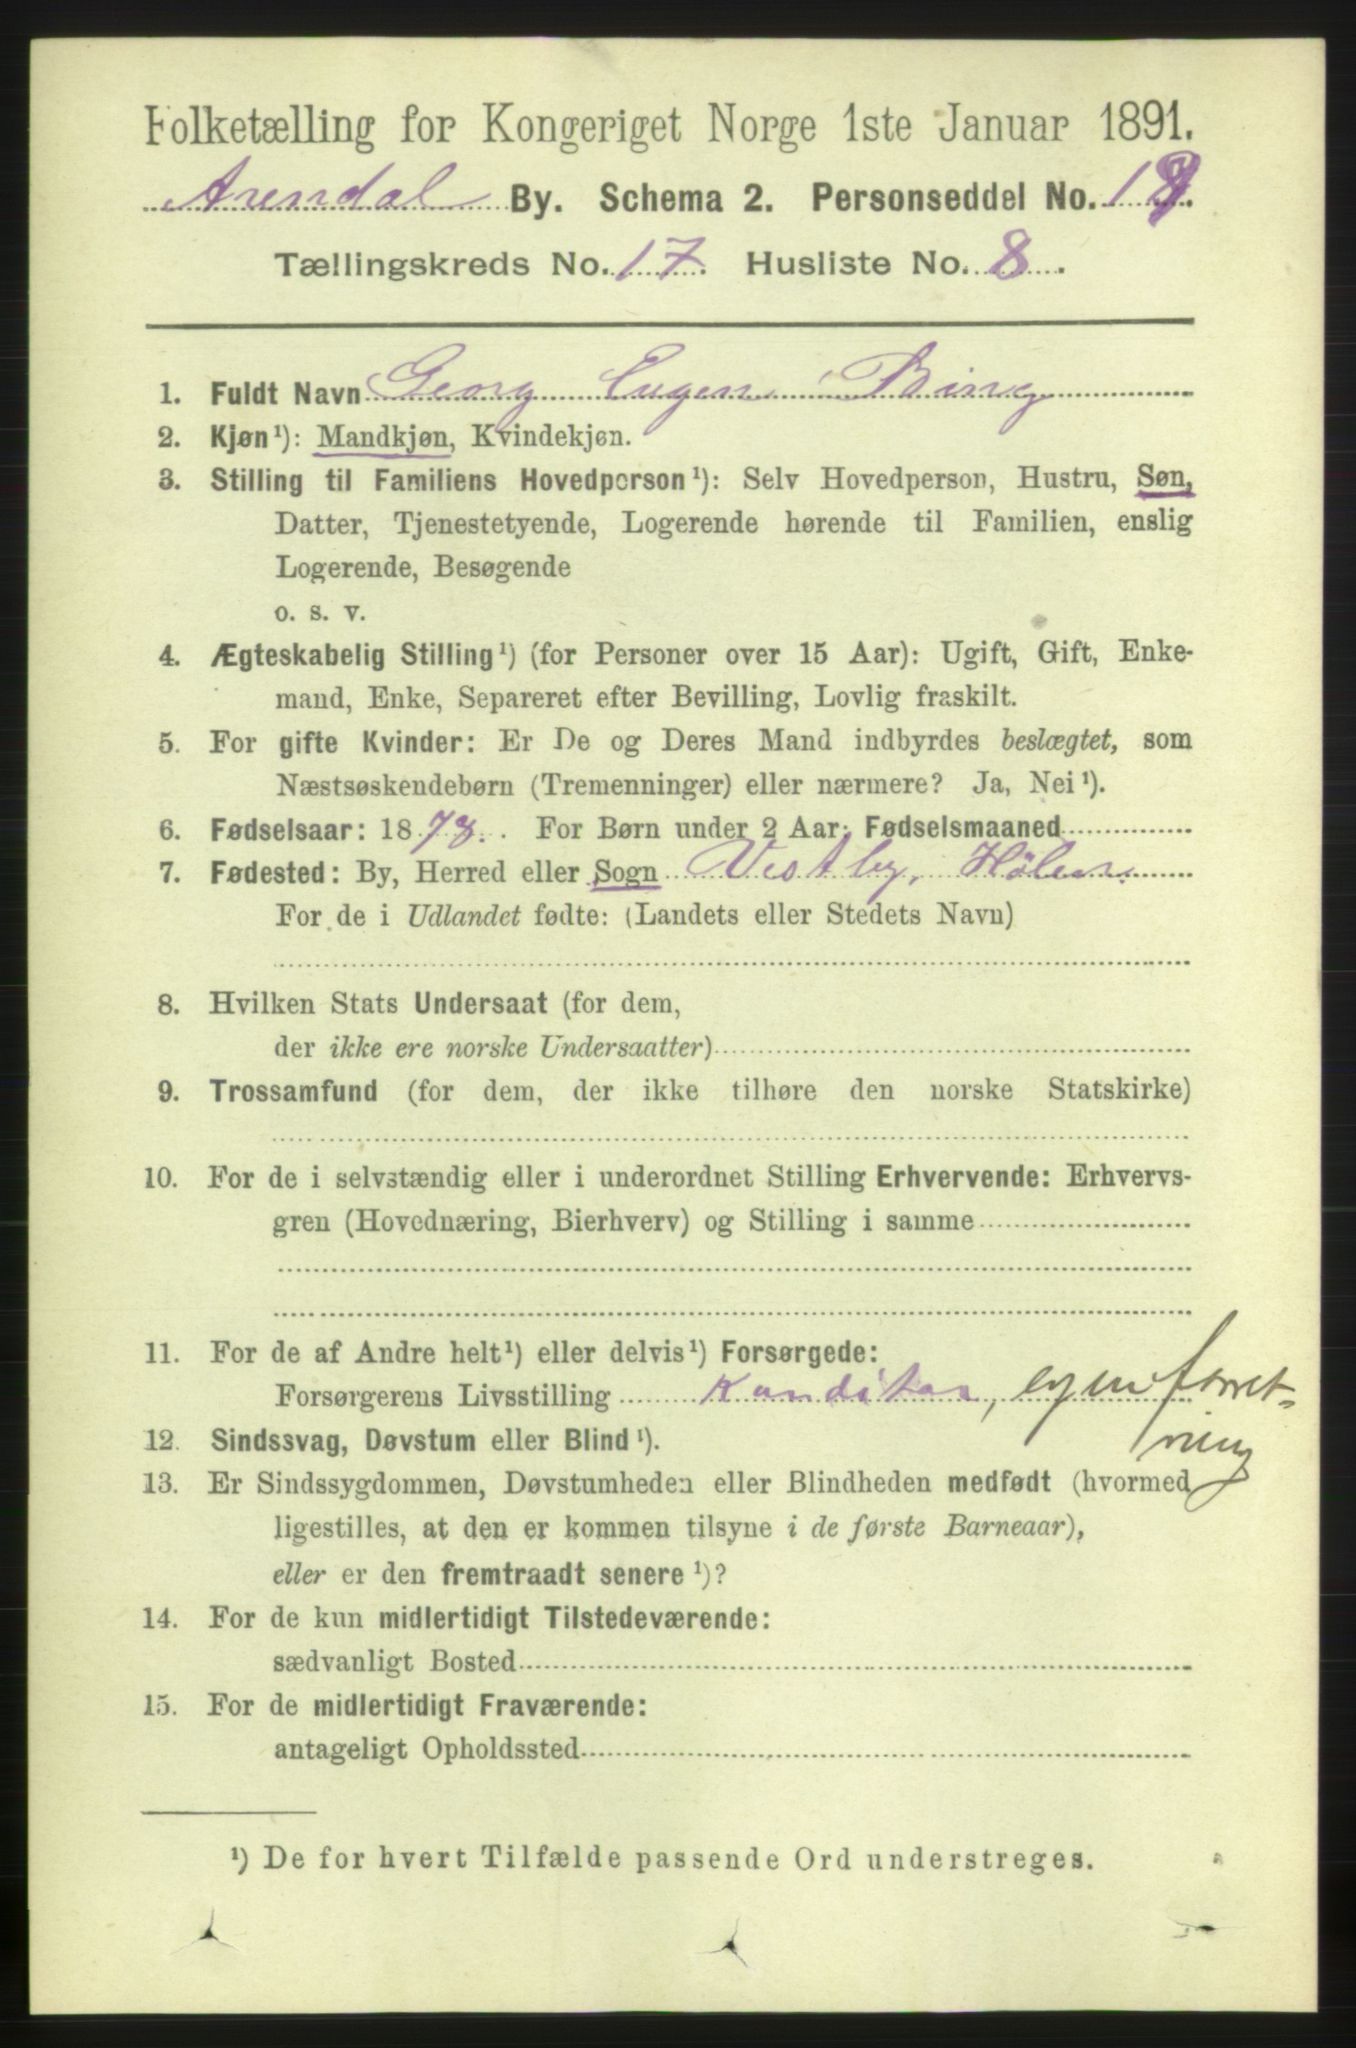 Folketælling for Kongeriget Norge 1ste Januar 1891.
Arendal By. Schema 2. Personseddel No.
Tællingskreds No. 17. Husliste No. 8.
1. Fuldt Navn Georg Eugen Bing
2. Kjøn¹): Mandkjøn, Kvindekjøn.
3. Stilling til Familiens Hovedperson¹): Selv Hovedperson, Hustru, Søn,
Datter, Tjenestetyende, Logerende hørende til Familien, enslig
Logerende, Besøgende
o. s. v.
4. Ægteskabelig Stilling¹) (for Personer over 15 Aar): Ugift, Gift, Enke-
mand, Enke, Separeret efter Bevilling, Lovlig fraskilt.
5. For gifte Kvinder: Er De og Deres Mand indbyrdes beslægtet, som
Næstsøskendebørn (Tremenninger) eller nærmere? Ja, Nei¹).
6. Fødselsaar: 1878. For Børn under 2 Aar: Fødselsmaaned
7. Fødested: By, Herred eller Sogn Vestby, Hølen.
For de i Udlandet fødte: (Landets eller Stedets Navn)
8. Hvilken Stats Undersaat (for dem,
der ikke ere norske Undersaatter)
9. Trossamfund (for dem, der ikke tilhøre den norske Statskirke)
10. For de i selvstændig eller i underordnet Stilling Erhvervende: Erhvervs-
gren (Hovednæring, Bierhverv) og Stilling i samme
11. For de af Andre helt¹) eller delvis¹) Forsørgede:
Forsørgerens Livsstilling Konditor, egen forret-
ning
12. Sindssvag, Døvstum eller Blind¹).
13. Er Sindssygdommen, Døvstumheden eller Blindheden medfødt (hvormed
ligestilles, at den er kommen tilsyne i de første Barneaar),
eller er den fremtraadt senere¹)?
14. For de kun midlertidigt Tilstedeværende:
sædvanligt Bosted
15. For de midlertidigt Fraværende:
antageligt Opholdssted
¹) De for hvert Tilfælde passende Ord understreges.